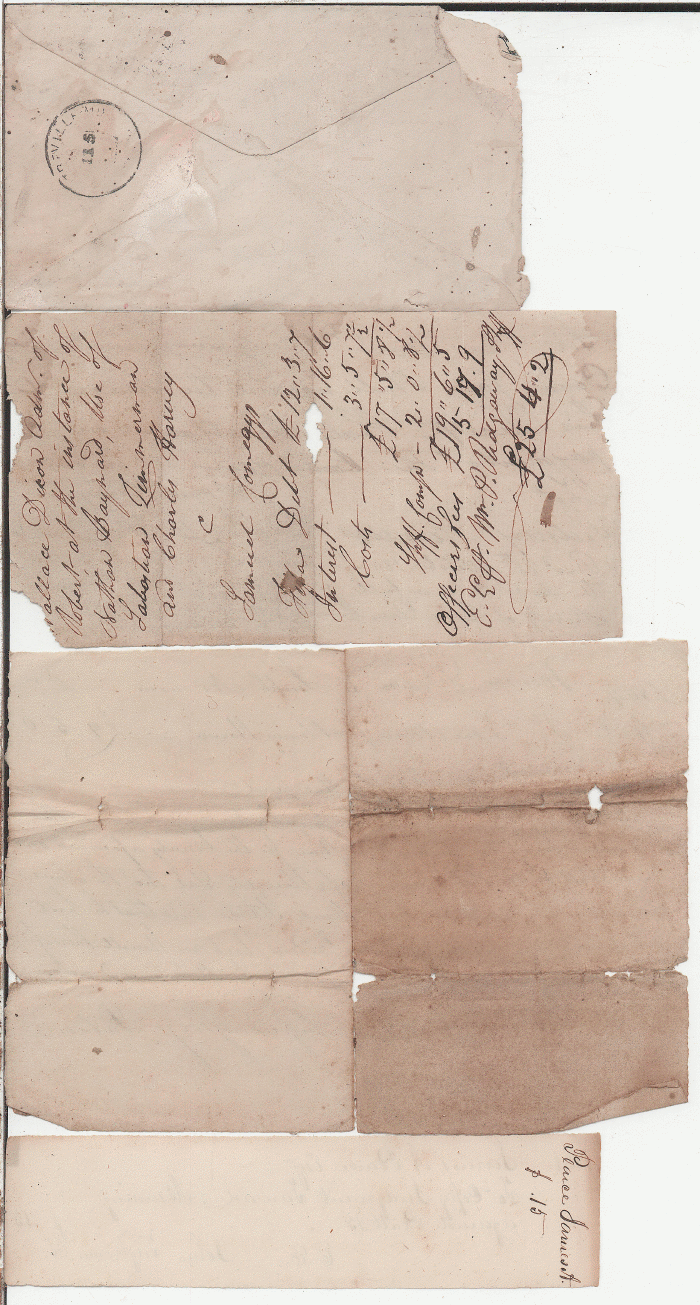 JAN 5
Wallace Dixon Adm. of
Robert at the instance of
Nathan Baynard, Use of
Zimmerman
and Charles Harvey
Samuel Comegys
Debt £12..3..7
Interest — 1..16..6
Costs — 3..5..7½
£17..5..8½
Shff. Comps — 2..0..8½
£19..6..5
Officers fees 5 17.9
Wm. P. Ridgaway Shff
£25 4..2
Pearce James A.
$ .15